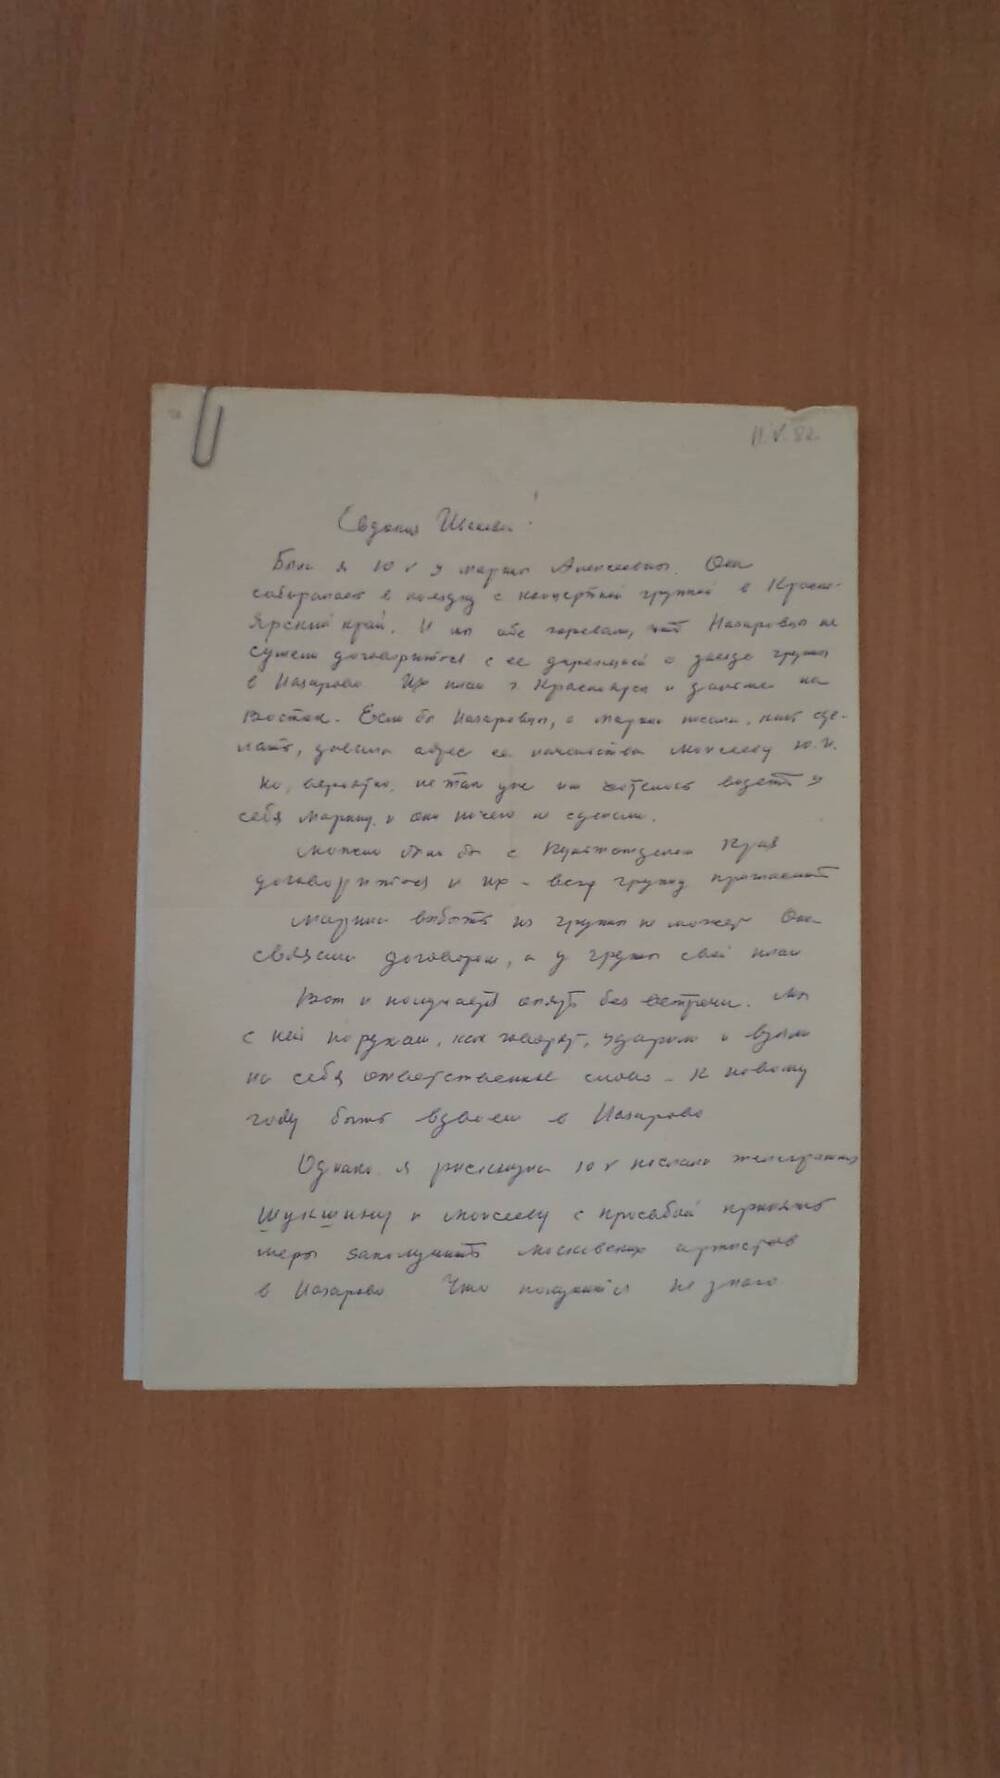 11.V.82.
Евдокия !
Был я 10 V у Марины Алексеевны. Она
собирается в поездку с концертной группой в Красно-
ярский край. И мы обе горевали, что Назаровцы не
сумели договориться с ее дирекцией о заезде группы
в Назарово Их план г. Красноярск и дальше на
Восток. Если бы Назаровцы, а Марина писала, как сде-
лать, давала адрес ее начальства Моисееву Ю.И.
Но, вероятно, не так уж им хотелось видеть у
себя Марину, и они ничего не сделали.
Можно было бы с Крайотделом
договориться и их - всю группу пригласить
Марина выбыть из группы не может Она
связана договором, а у группы свой план
Вот и получается опять без встречи. Мы
с ней по рукам, как говорят, ударили и взяли
на себя ответственное слово - к новому
году быть вдвоем в Назарово
Однако я 10 V послали телеграммы
Шукшину и Моисееву с просьбой принять
меры заполучить московских артистов
в Назарово Что получится не знаю